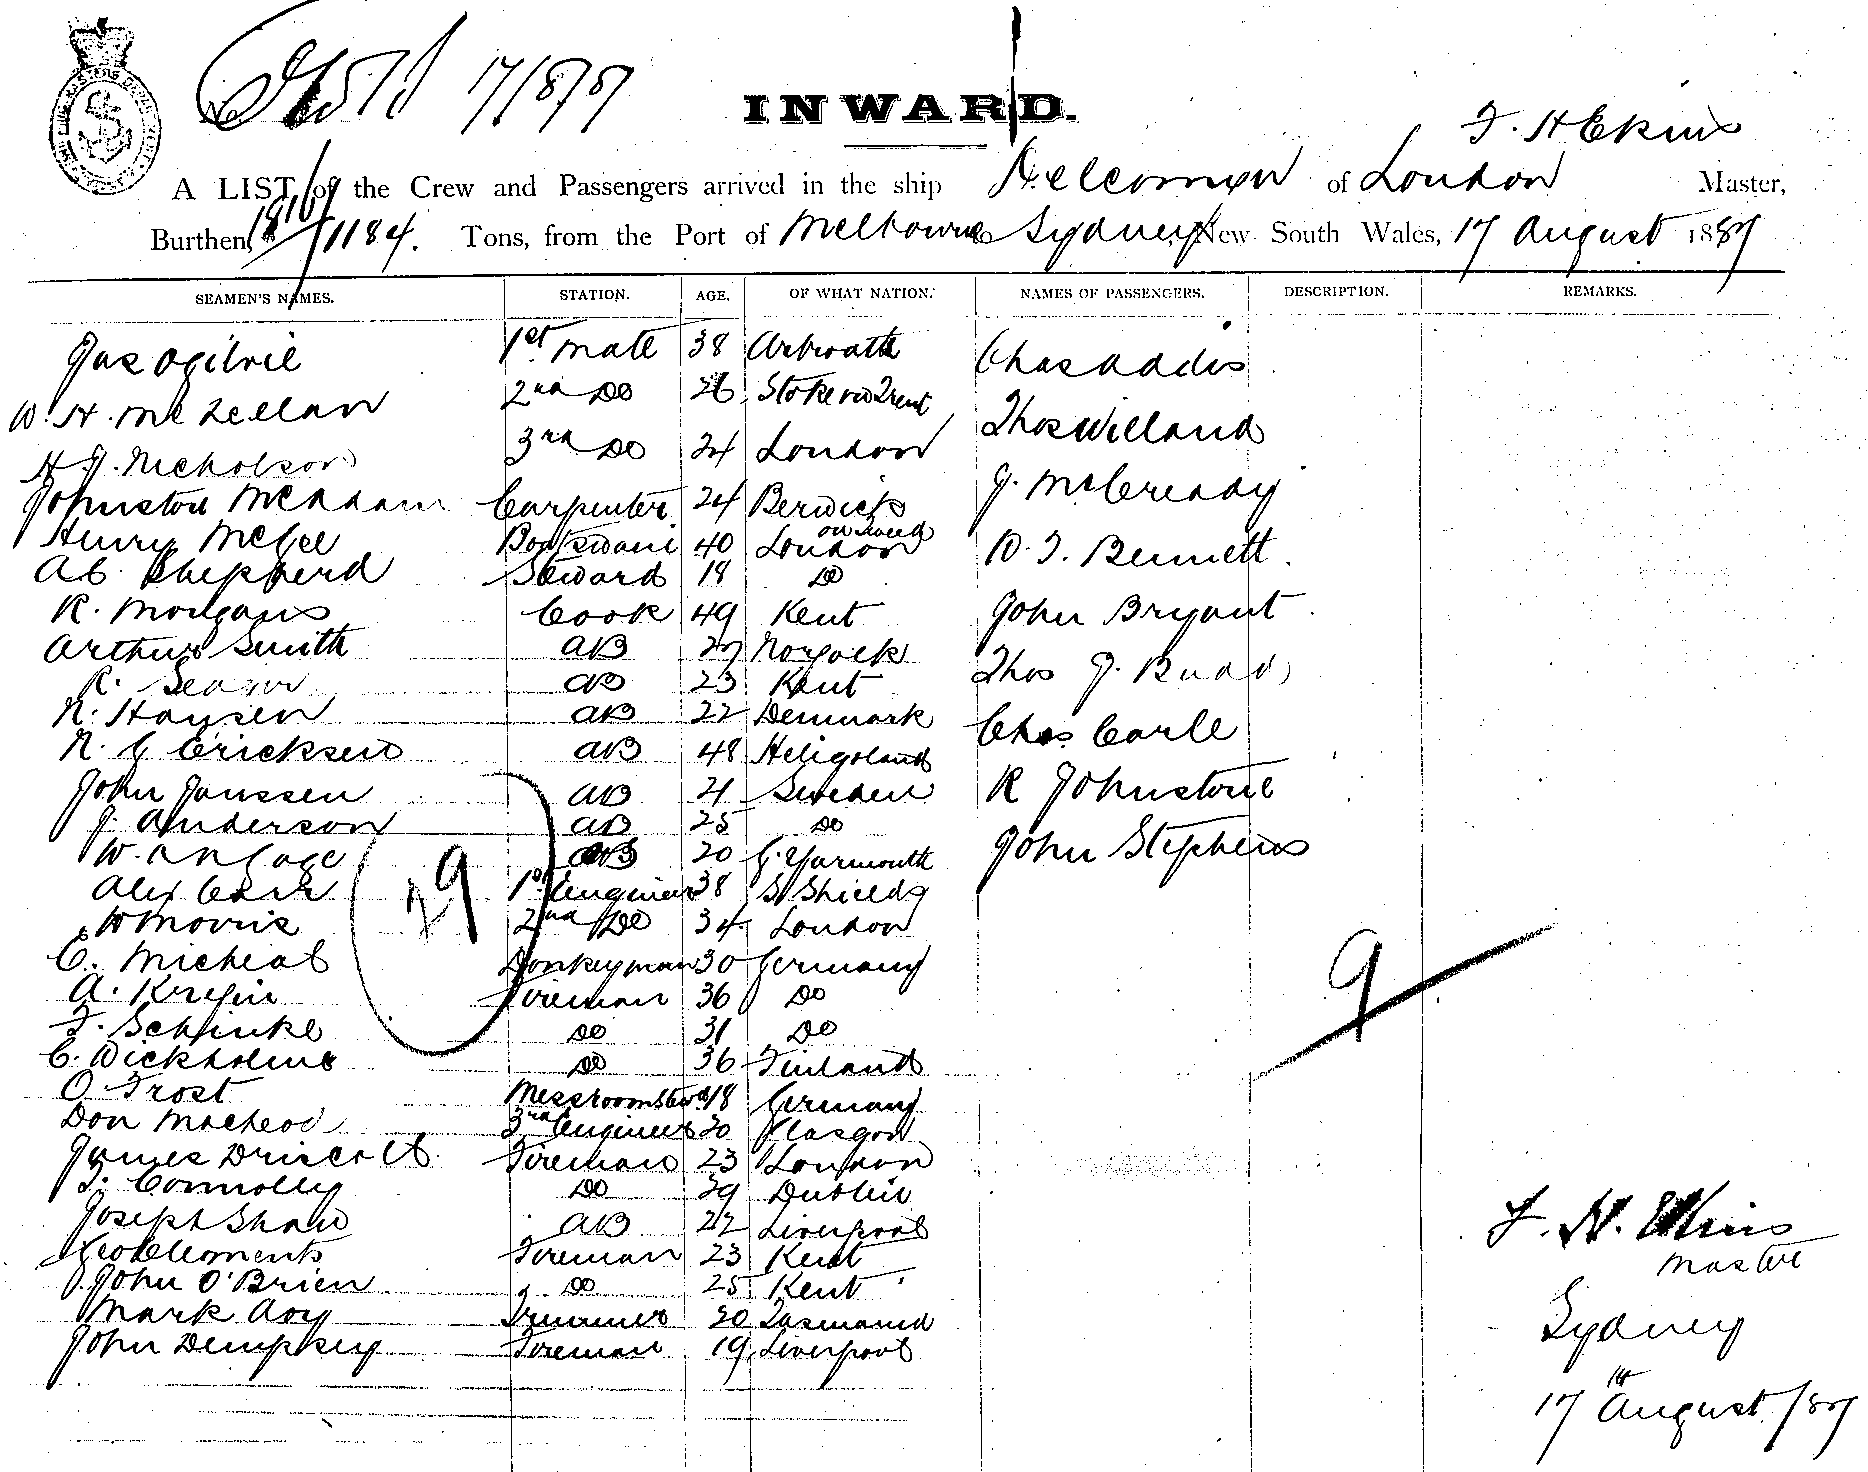 17/8/87
INWARD.
F. H Ekins
A LIST of the Crew and Passengers arrived in the ship of London Master,
Burthen, 1816/1184. Tons, from the Port of Melbourne to Sydney New South Wales, 17 August 1887
SEAMEN'S NAMES. STATION. AGE. OF WHAT NATION. NAMES OF PASSENGERS. DESCRIPTION. REMARKS.
Jas Ogilvie 1st Mate 38 Arbroath Chas Addis
W. H. McLellan 2nd Do 26 Stoke on Trent Thos Willand
H J. Nicholson 3rd Do 24 London J. McCready
Johnston McAdam Carpenter 24 Berwick on Tweed
Henry McGee Boatswain 40 London D. J. Bennett
A C. Shepperd Steward 18 Do
R. Morgans Cook 49 Kent John Bryant
Arthur Smith AB 27 Norfolk
R. Seager AB 23 Kent Thos J. Budd
N. Haysen AB 22 Denmark Chas Carle
N. J Ericksen AB 48 Heligoland
John Janssen AB 21 Sweden R Johnstone
J. Anderson AB 25 Do
W. Gage AB 20 G. Yarmouth John Stephens
Alex Carr 1st Engineer 38 S Shields
W Morris 2nd Do 34 London
C. Micheal Donkeyman 30 Germany
A. Krefin Fireman 36 Do
F. Schinke Do 31 Do
C. Wickholme Do 36 Finland
O Frost Messroom Stewd 18 Germany
Don Macleod 3rd Engineer 30 Glasgow
James Driscoll Fireman 23 London
T. Connolly Do 39 Dublin
Joseph Shaw AB 22 Liverpool
Geo Clements Fireman 23 Kent
John O'Brien Do 25 Kent
Mark Aoy Trimmer 20 Tasmania
John Dempsey Fireman 19 Liverpool
29
9
F. H. Ekins
Master
Sydney
17th August/87